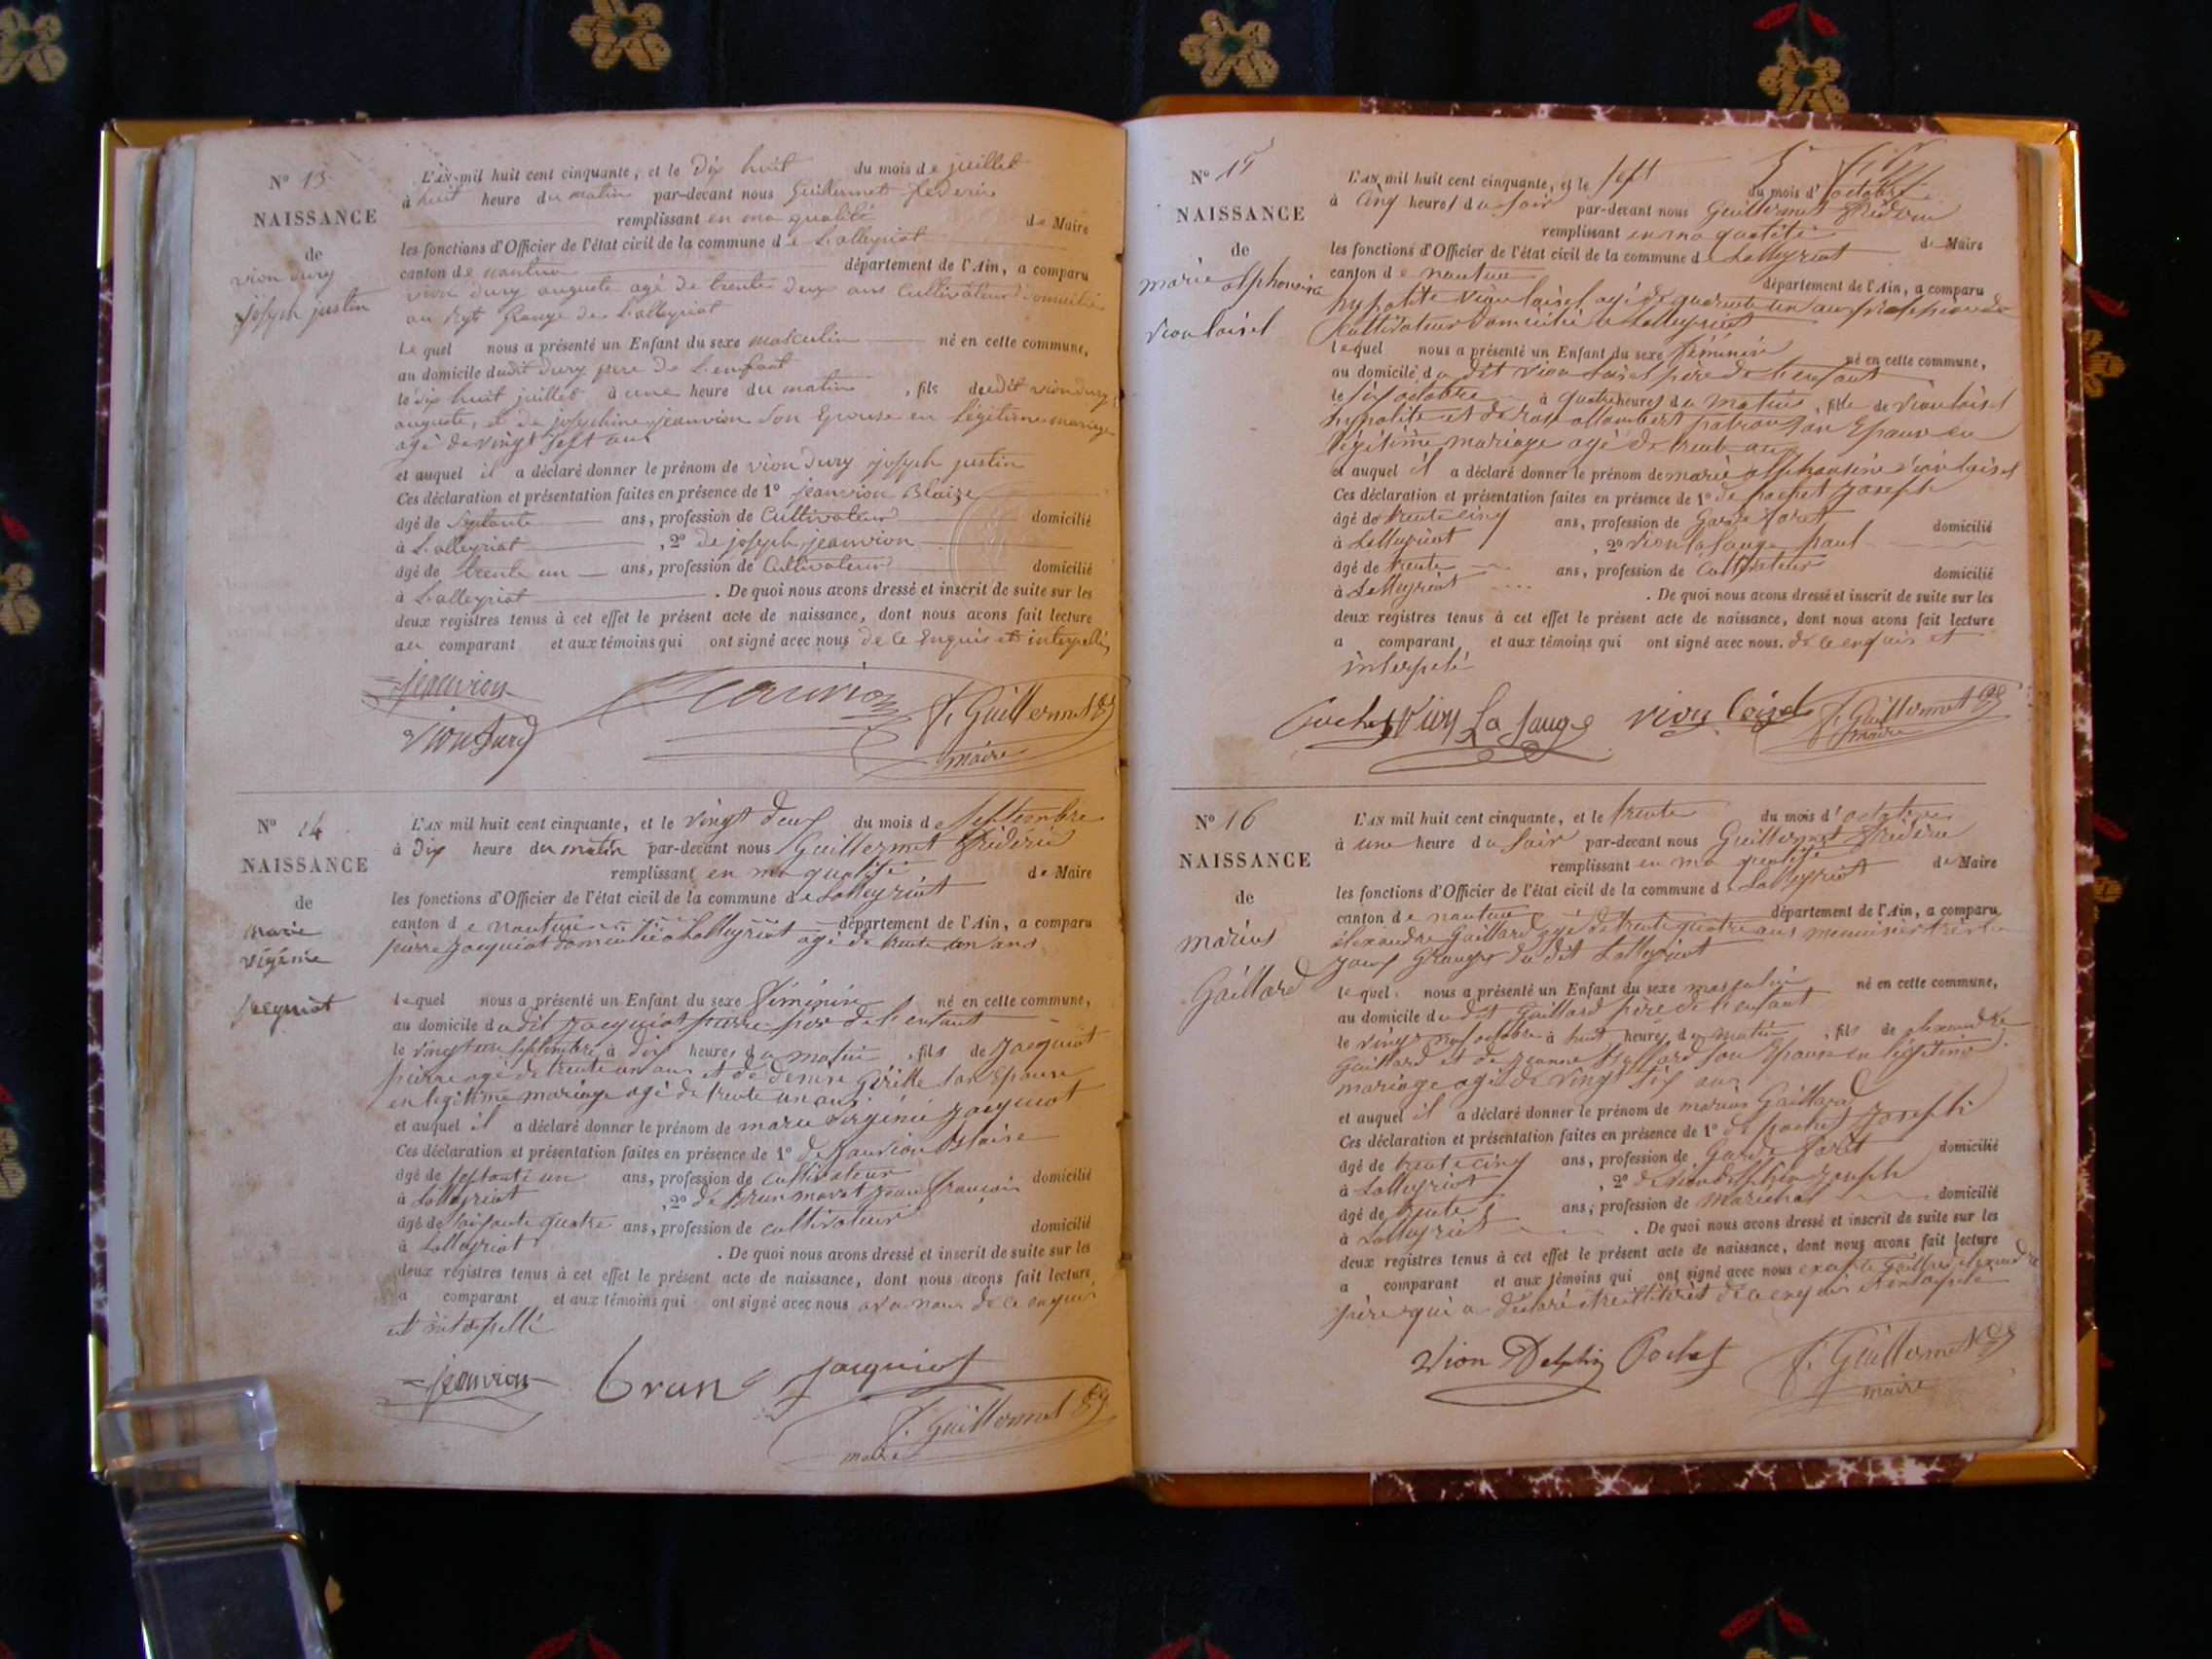 N° 13
NAISSANCE
de
vion dury
joseph justin
L'AN mil huit cent cinquante, et le dix huit du mois de juillet
à huit heure du matin par-devant nous Guillermet féderic
remplissant en ma qualité de Maire
les fonctions d'Officier de l'état civil de la commune de Lalleyriat
canton de nantua département de l'Ain, a comparu
vion dury auguste agé de trente deux ans Cultivateur domicilié
au grange de Lalleyriat
Lequel nous a présenté un Enfant du sexe masculin né en cette commune,
au domicile dudit dury père de L'enfant
le dix huit juillet à une heure du matin, fils dudit vion dury
auguste, et de josephine jeanvion son Epouse en légitime mariage
agé de vingt sept ans
et auquel il a déclaré donner le prénom de vion dury joseph justin
Ces déclaration et présentation faites en présence de 1° jeanvion Blaize
âgé de septante ans, profession de Cultivateur domicilié
à Lalleyriat, 2° de joseph jeanvion
âgé de trente un ans, profession de Cultivateur domicilié
à Lalleyriat. De quoi nous avons dressé et inscrit de suite sur les
deux registres tenus à cet effet le présent acte de naissance, dont nous avons fait lecture
au comparant et aux témoins qui ont signé avec nous de ce Enquis et interpellés
jeanvion Jeanvion f. Guillermet
vion dury maire
N° 14
NAISSANCE
de
marie
virginie
jacquiot
L'AN mil huit cent cinquante, et le vingt deux du mois de septembre
à dix heure du matin par-devant nous Guillermet fréderic
remplissant en ma qualité de Maire
les fonctions d'Officier de l'état civil de la commune de Lalleyriat
canton de nantua département de l'Ain, a comparu
pierre jacquiot domicilié a Lalleyriat agé de trente un ans
lequel nous a présenté un Enfant du sexe féminin né en cette commune,
au domicile dudit jacquiot pierre père de l'enfant
le vingt un septembre à dix heures du matin, fils de jacquiot
pierre agé de trente un ans et de denise son Epouse
en legitime mariage agé de trente un ans
et auquel il a déclaré donner le prénom de marie virginie jacquiot
Ces déclaration et présentation faites en présence de 1° de jeanvion Blaise
âgé de septante un ans, profession de cultivateur domicilié
à Lalleyriat, 2° de Brun maret jean françois
âgé de soixante quatre ans, profession de cultivateur domicilié
à Lalleyriat. De quoi nous avons dressé et inscrit de suite sur les
deux registres tenus à cet effet le présent acte de naissance, dont nous avons fait lecture
a comparant et aux témoins qui ont signé avec nous de ce enquis
et interpellé
jeanvion brun jacquiot
f. Guillermet
maire
N° 15
NAISSANCE
de
marie alphonsine
vion loisel
L'AN mil huit cent cinquante, et le sept du mois d'octobre
à cinq heures du soir par-devant nous Guillermet fréderic
remplissant en ma qualité de Maire
les fonctions d'Officier de l'état civil de la commune de Lalleyriat
canton de nantua département de l'Ain, a comparu
hypolite vion loisel agé de quarente un ans profession de
cultivateur domicilié a Lalleyriat
lequel nous a présenté un Enfant du sexe féminin né en cette commune,
au domicile du dit vion loisel père de l'enfant
le six octobre à quatre heures du matin, fille de vion loisel
hypolite et de rose allombert son Epouse en
légitime mariage agé de trente ans
et auquel il a déclaré donner le prénom de marie alphonsine vion loisel
Ces déclaration et présentation faites en présence de 1° de pochet joseph
âgé de trente cinq ans, profession de Garde foret domicilié
à Lalleyriat, 2° vion la sauge paul
âgé de trente ans, profession de cultivateur domicilié
à Lalleyriat. De quoi nous avons dressé et inscrit de suite sur les
deux registres tenus à cet effet le présent acte de naissance, dont nous avons fait lecture
a comparant et aux témoins qui ont signé avec nous. de ce enquis et
interpelé
Pochet Vion La Sauge vion loisel f. Guillermet
maire
N° 16
NAISSANCE
de
marius
Gaillard
L'AN mil huit cent cinquante, et le trente du mois d'octobre
à une heure du soir par-devant nous Guillermet fréderic
remplissant en ma qualité de Maire
les fonctions d'Officier de l'état civil de la commune de Lalleyriat
canton de nantua département de l'Ain, a comparu
alexandre Gaillard agé de trente quatre ans menuisier
granges du dit Lalleyriat
lequel nous a présenté un Enfant du sexe masculin né en cette commune,
au domicile du dit Gaillard père de l'enfant
le vingt neuf octobre à huit heures du matin, fils de alexandre
Gaillard et de jeanne son Epouse en légitime
mariage agé de vingt six ans
et auquel il a déclaré donner le prénom de marius Gaillard
Ces déclaration et présentation faites en présence de 1° de pochet joseph
âgé de trente cinq ans, profession de Garde foret domicilié
à Lalleyriat, 2° de vion delphin joseph
âgé de trente ans; profession de marechal domicilié
à Lalleyriat. De quoi nous avons dressé et inscrit de suite sur les
deux registres tenus à cet effet le présent acte de naissance, dont nous avons fait lecture
a comparant et aux témoins qui ont signé avec nous Gaillard alexandre
père qui a déclaré de ce enquis et interpelé
Vion Delphin Pochet f. Guillermet
maire